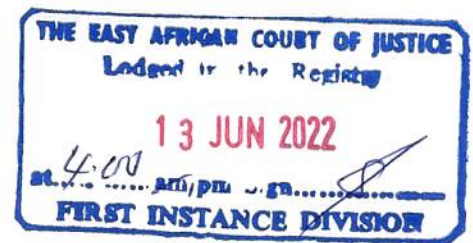 THE EAST AFRICAN COURT OF JUSTICE
Lodged in the Registry
13 JUN 2022
at 4.00 am/pm
FIRST INSTANCE DIVISION